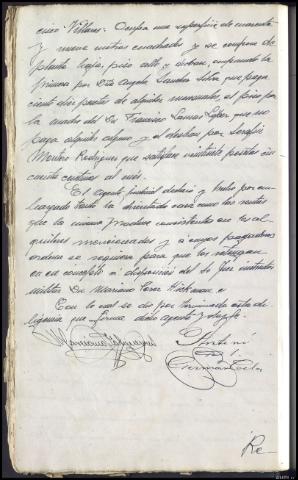 cinco Villares. Ocupa una superficie de cuarenta
y nueve metros cuadrados y se compone de
planta baja, piso alto y desban, ocupando la
primera por Dña Angela Sanchez Silva que paga
ciento dos pesetas de alquiler mensuales, el piso por
la madre del Sr. Francisco Lamas López que no
paga alquiler alguno y el desban por Serafin
Montero Rodriguez que satisface veintisiete pesetas cin
cuenta centimos al mes.
El Agente judicial declaró y hubo por em
bargado tanto la deslindada como las rentas
que la misma produce consistentes en los al
quileres mencionados y a cuyos pagadores
ordena se requiera para que los retengan
en su concepto a disposición del Sr Juez instructor
militar Dn Mariano
Con lo cual se da por terminada esta di
ligencia que firma dicho Agente y doy fe.
Germán
Re-